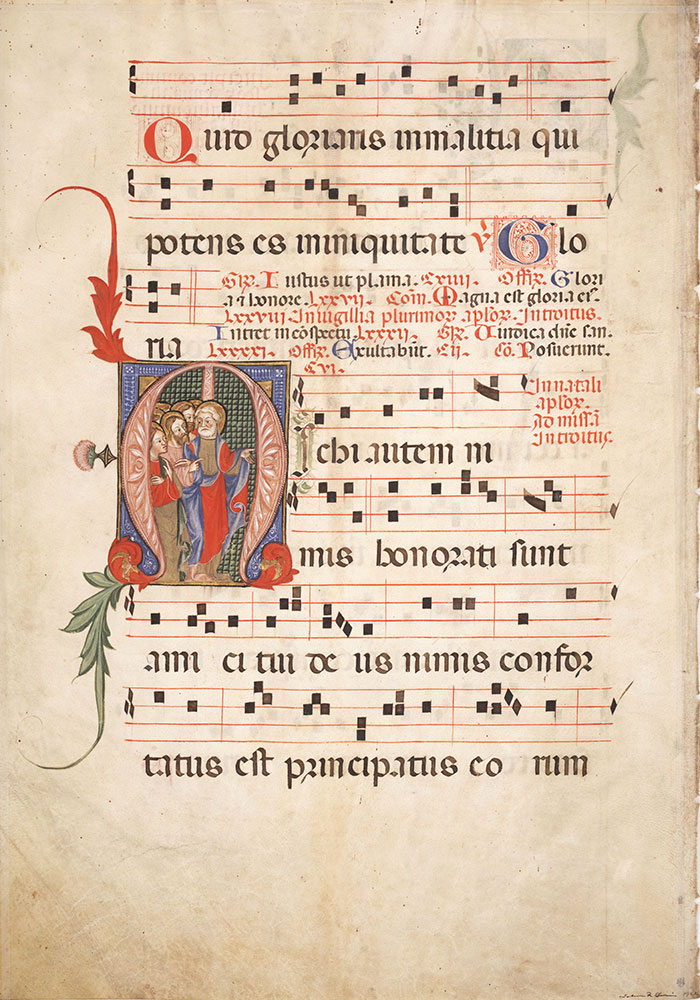 Quid gloriaris inmalitia qui
potens es ininiquitate ℣ Glo
Gr. Iustus ut plama. Cxiiii. Offer. Glori
a & honore. Lxxvii. Com. Magna est gloria ei9.
Lxxviii. In uigillia plurimor aplor. Introitus.
Intret in cōspectu. Lxxxii. Gr. Uindica dñe san.
ria
Lxxxxi. Offer. Exultabūt. Cii. Cō. Posuerunt.
Cvi.
In natali
aplor.
ad missā
introitus
Michi autem ni
mis honorati sunt
ami ci tui de us nimis confor
tatus est principatus eo rum